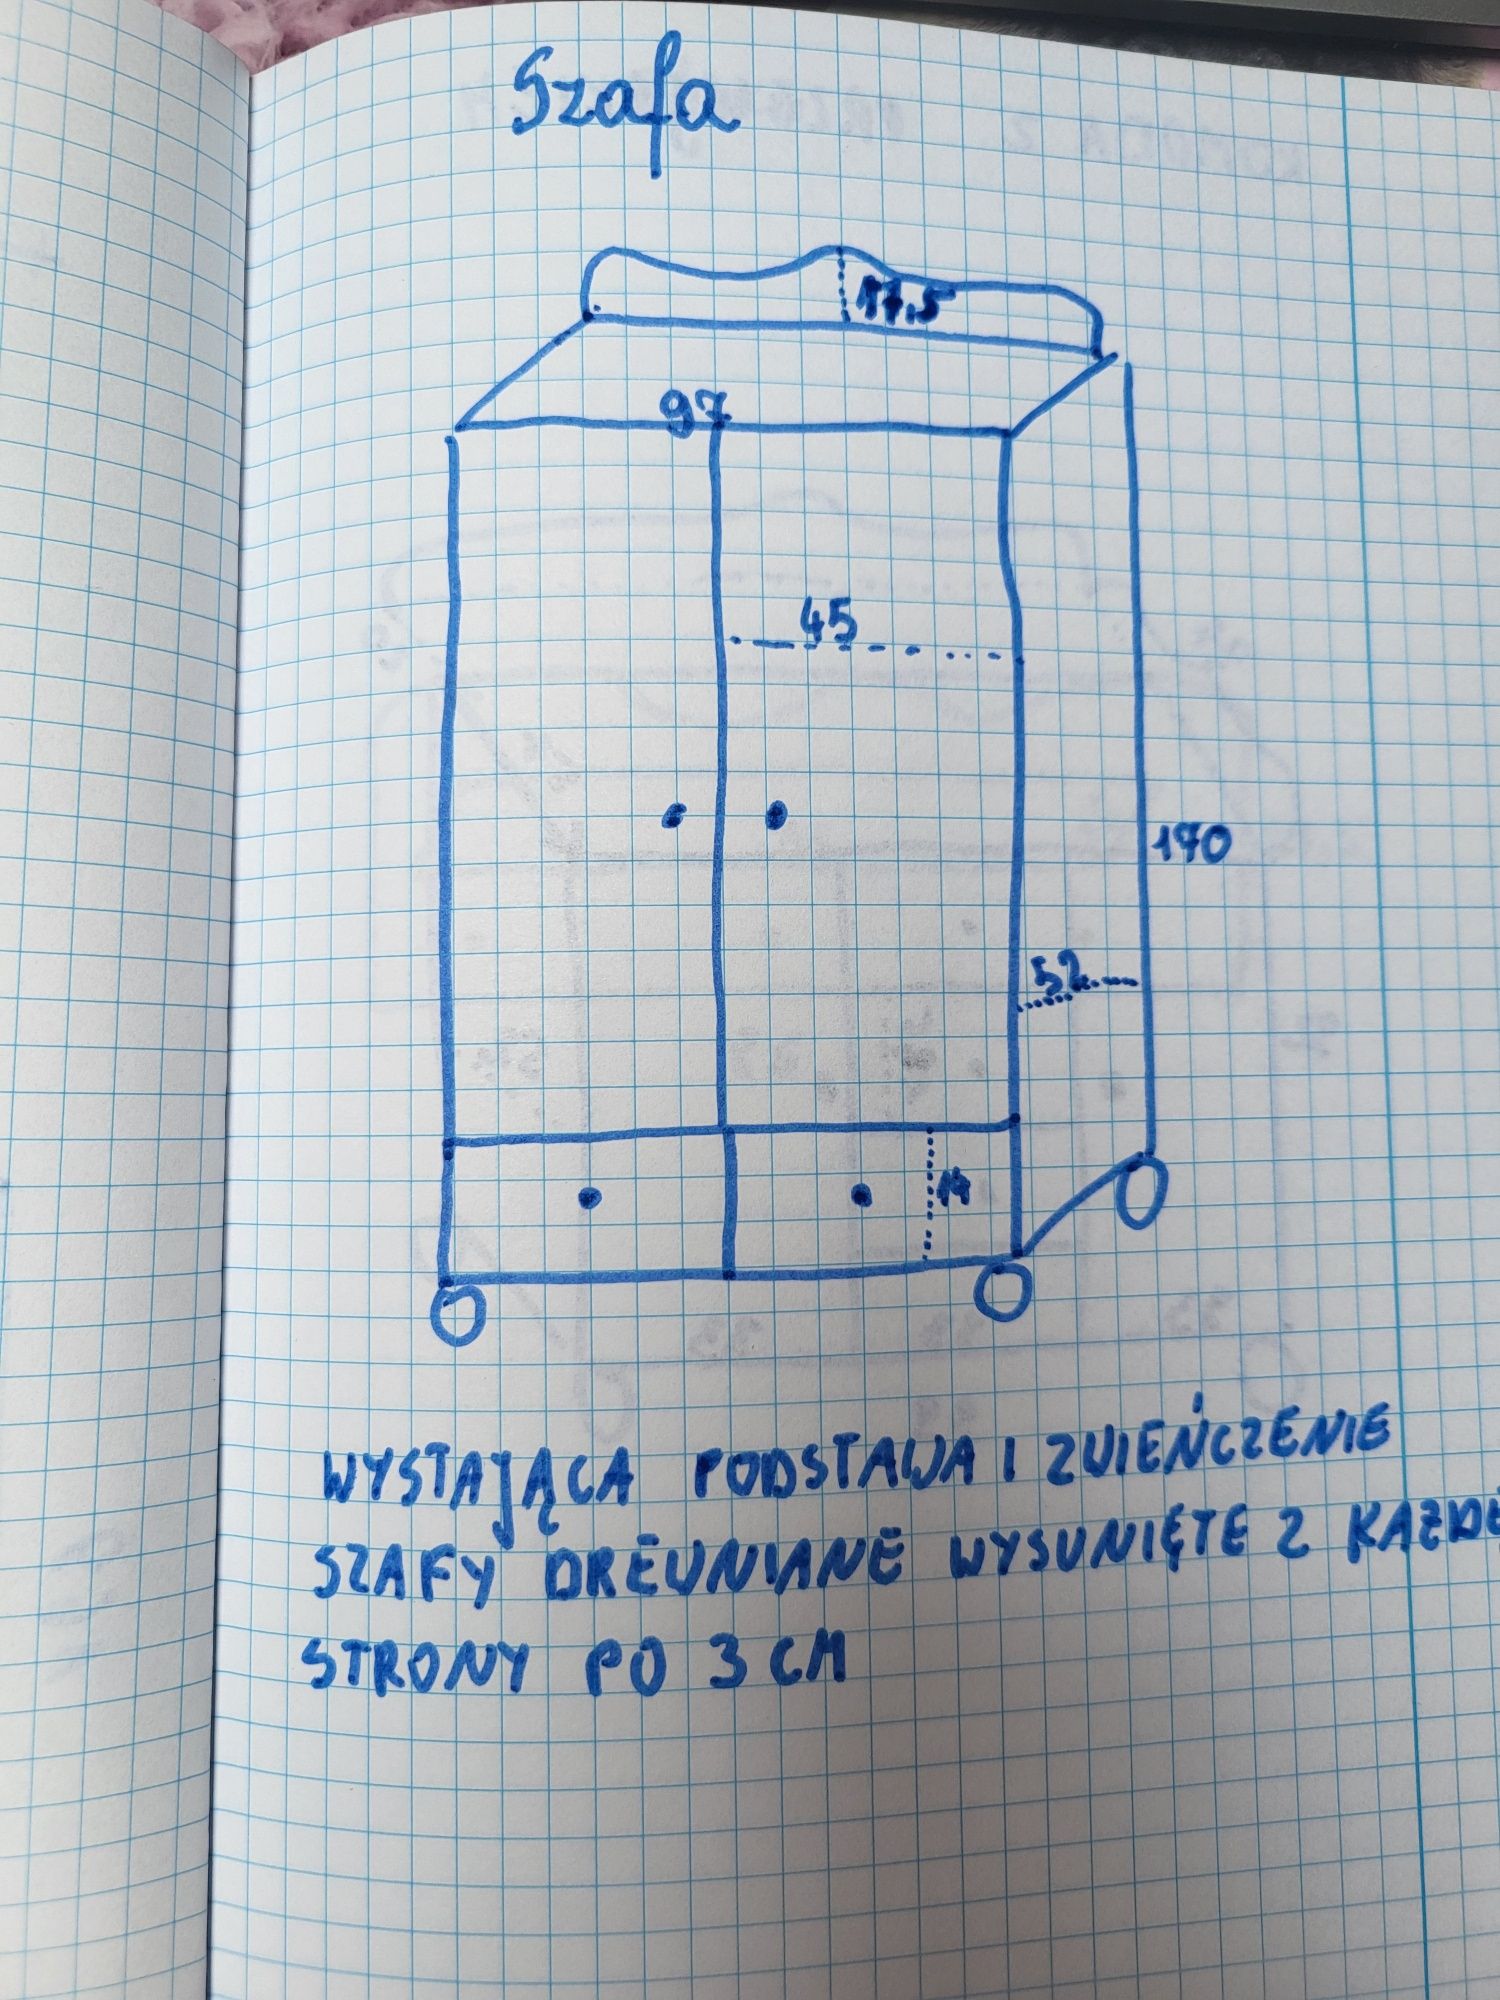 Szafa
17,5
97
45
170
52
14
WYSTAJĄCA PODSTAWA I ZWIEŃCZENIE
SZAFY DREWNIANE WYSUNIĘTE Z KAŻDE
STRONY PO 3 CM